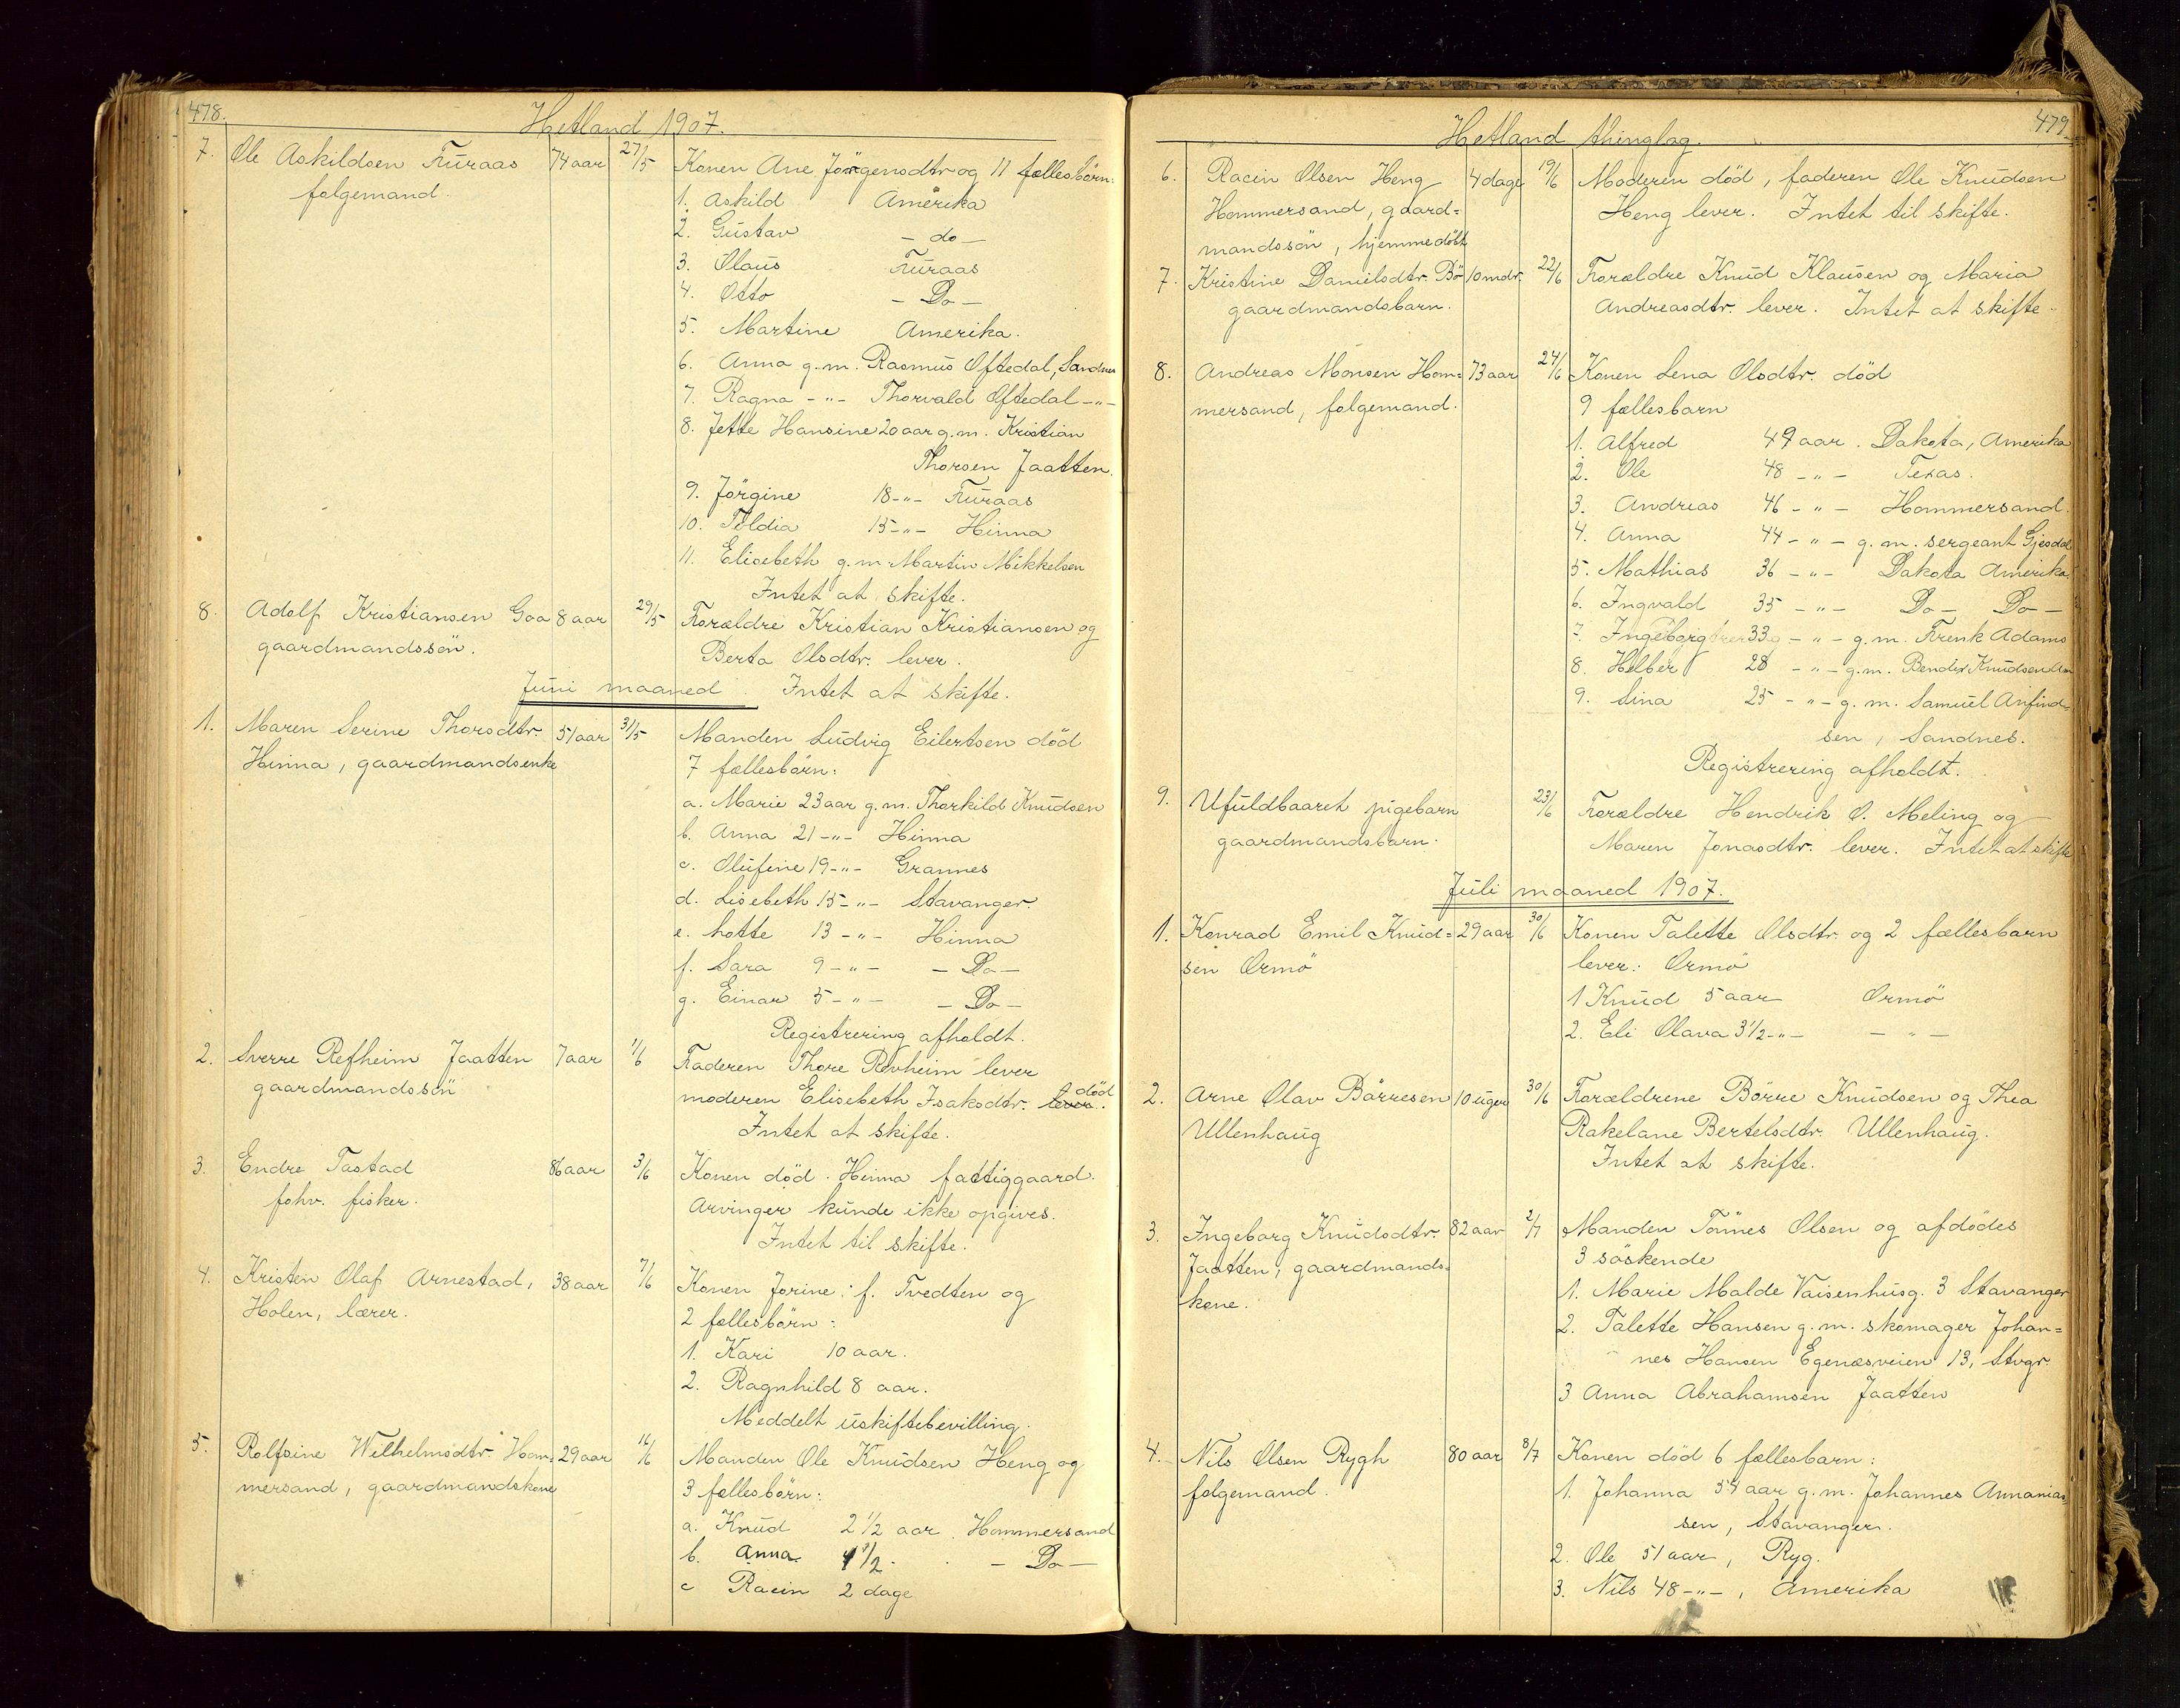 478.
Hetland 1907.
7. Ole Askildsen Furaas 74 aar 27/5 Konen Ane Jörgensdtr og 11 fællesbörn:
folgemand.
1. Askild Amerika
2. Gustav - do -
3. Olaus Furaas
4. Otto - Do -
5. Martine Amerika.
6. Anna g.m. Rasmus Oftedal, Sandnes
7. Ragna -"- Thorvald Oftedal -"-
8. Jette Hansine 20 aar g.m. Kristian
Thorsen Jaatten.
9. Jörgine 18 -"- Furaas
10. Toldia 15 -"- Hinna
11. Elisebeth g.m. Martin Mikkelsen
Intet at skifte.
8. Adolf Kristiansen Goa 8 aar 29/5 Forældre Kristian Kristiansen og
gaardmandssön. Berta Olsdtr. lever.
Juni maaned. Intet at skifte.
1. Maren Serine Thorsdtr. 51 aar 31/5 Manden Ludvig Eilertsen död
Hinna, gaardmandsenke 7 fællesbörn:
a. Marie 23 aar g.m. Thorkild Knudsen
b. Anna 21 -"- Hinna
c. Olufine 19 -"- Grannes
d. Lisebeth 15 -"- Stavanger.
e. Lotte 13 -"- Hinna
f. Sara 9 -"- - Do -
g. Einar 5 -"- - Do -
Registrering afholdt.
2. Sverre Refheim Jaatten 7 aar 1/6 Faderen Thore Revheim lever
gaardmandssön moderen Elisebeth Isaksdtr. lever. död
Intet at skifte.
3. Endre Tastad 86 aar 3/6 Konen död. Hinna fattiggaard.
fohv. fisker. Arvinger kunde ikke opgives.
Intet til skifte.
4. Kristen Olaf Arnestad, 38 aar 7/6 Konen Jorine: f. Tvedten og
Holen, lærer. 2 fellesbörn:
1. Kari 10 aar.
2. Ragnhild 8 aar.
Meddelt uskiftebevilling.
5. Rolfsine Wilhelmsdtr. Hom= 29 aar 16/6 Manden Ole Knudsen Heng og
mersand, gaardmandskone 3 fellesbörn:
a. Knud 2 1/2 aar. Hommersand
b. Anna 1 1/2 - Do -
c Racin 2 dage
479.
Hetland thinglag.
6. Racin Olsen Heng 4 dage 19/6 Moderen död, faderen Ole Knudsen
Hommersand, gaard= Heng lever. Intet til skifte.
mandssön, hjemmedöbt
7. Kristine Danielsdtr. Bö 10 mdr. 22/6 Forældre Knud Klausen og Maria
gaardmandsbarn. Andreasdtr. lever. Intet at skifte.
8. Andreas Monsen Hom= 73 aar 24/6 Konen Lena Olsdtr. död
mersand, folgemand. 9 fællesbarn
1. Alfred 49 aar. Dakota, Amerika
2. Ole 48 -"- Texas.
3. Andreas 46 -"- Hommersand.
4. Anna 44 -"- g.m. sergeant Gjesdal
5. Mathias 36 -"- Dakota Amerika
6. Ingvald 35 -"- Do - Do -
7. Ingeborg 33 -"- g.m. Frenk Adams
8. Helber 28 -"- g.m. Bendix
9. Sina 25 -"- g.m. Samuel Anfind=
sen, Sandnes.
Registrering afholdt.
9. Ufuldbaaret pigebarn 23/6 Forældre Hendrik O. Meling og
gaardmandsbarn. Maren Jonasdtr. lever. Intet at skifte
Juli maaned 1907.
1. Konrad Emil Knud= 29 aar 30/6 Konen Talette Olsdtr. og 2 fællesbarn
sen Ormö lever: Ormö
1 Knud 5 aar Ormö
2. Eli Olava 3 1/2 -"- - " -
2. Arne Olav Börresen 10 uger 30/6 Forældrene Börre Knudsen og Thea
Ullenhaug Rakelane Bertelsdtr. Ullenhaug.
Intet at skifte.
3. Ingeborg Knudsdtr. 82 aar 2/7 Manden Tönnes Olsen og afdödes
Jaatten, gaardmands= 3 söskende
kone. 1. Marie Malde Vaisenhusg. 3 Stavanger
2. Talette Hansen g.m. skomager Johan=
nes Hansen Egenæsveien 13, Stvgr.
3 Anna Abrahamsen Jaatten
4. Nils Olsen Rygh 80 aar 8/7 Konen död 6 fællesbarn:
folgemand. 1. Johanna 54 aar g.m. Johannes Annanias=
sen, Stavanger.
2. Ole 51 aar, Ryg.
3. Nils 48 -"-, Amerika